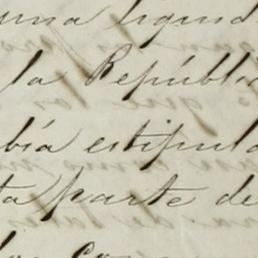 una liquid
la Repúbli
bía estipula
ta parte de